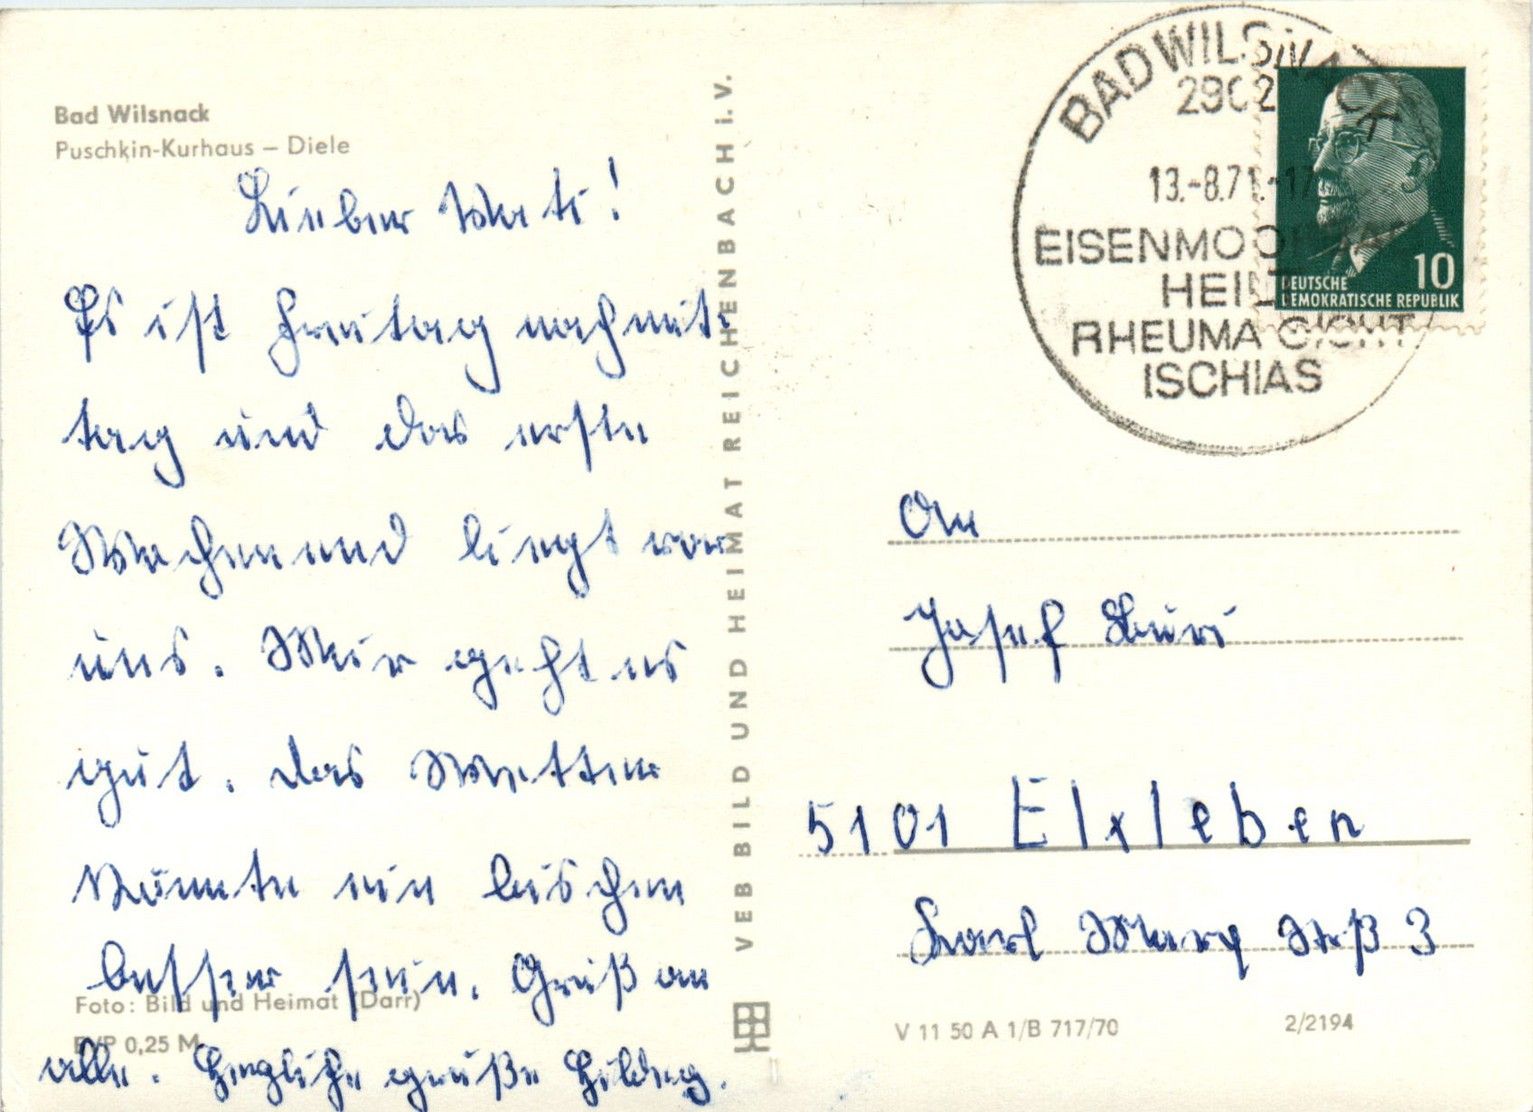 Bad Wilsnack
Puschkin-Kurhaus – Diele
Lieber Vati!
Es ist Freitag nachmit-
tag und das erste
Wochenend liegt vor
uns. Mir geht es
gut. das Wetter
könnte ein bischen
besser sein. Gruß an
alle. Herzliche grüße Hildeg.
Foto: Bild und Heimat (Darr)
EVP 0,25 M
VEB BILD UND HEIMAT REICHENBACH i. V.
BAD WILSNACK
2902
13.-8.71.-17
EISENMOORBAD
HEILT
RHEUMA GICHT
ISCHIAS
10
DEUTSCHE
DEMOKRATISCHE REPUBLIK
An
Josef
5101 Elxleben
Karl Marx Strß 3
V 11 50 A 1/B 717/70
2/2194